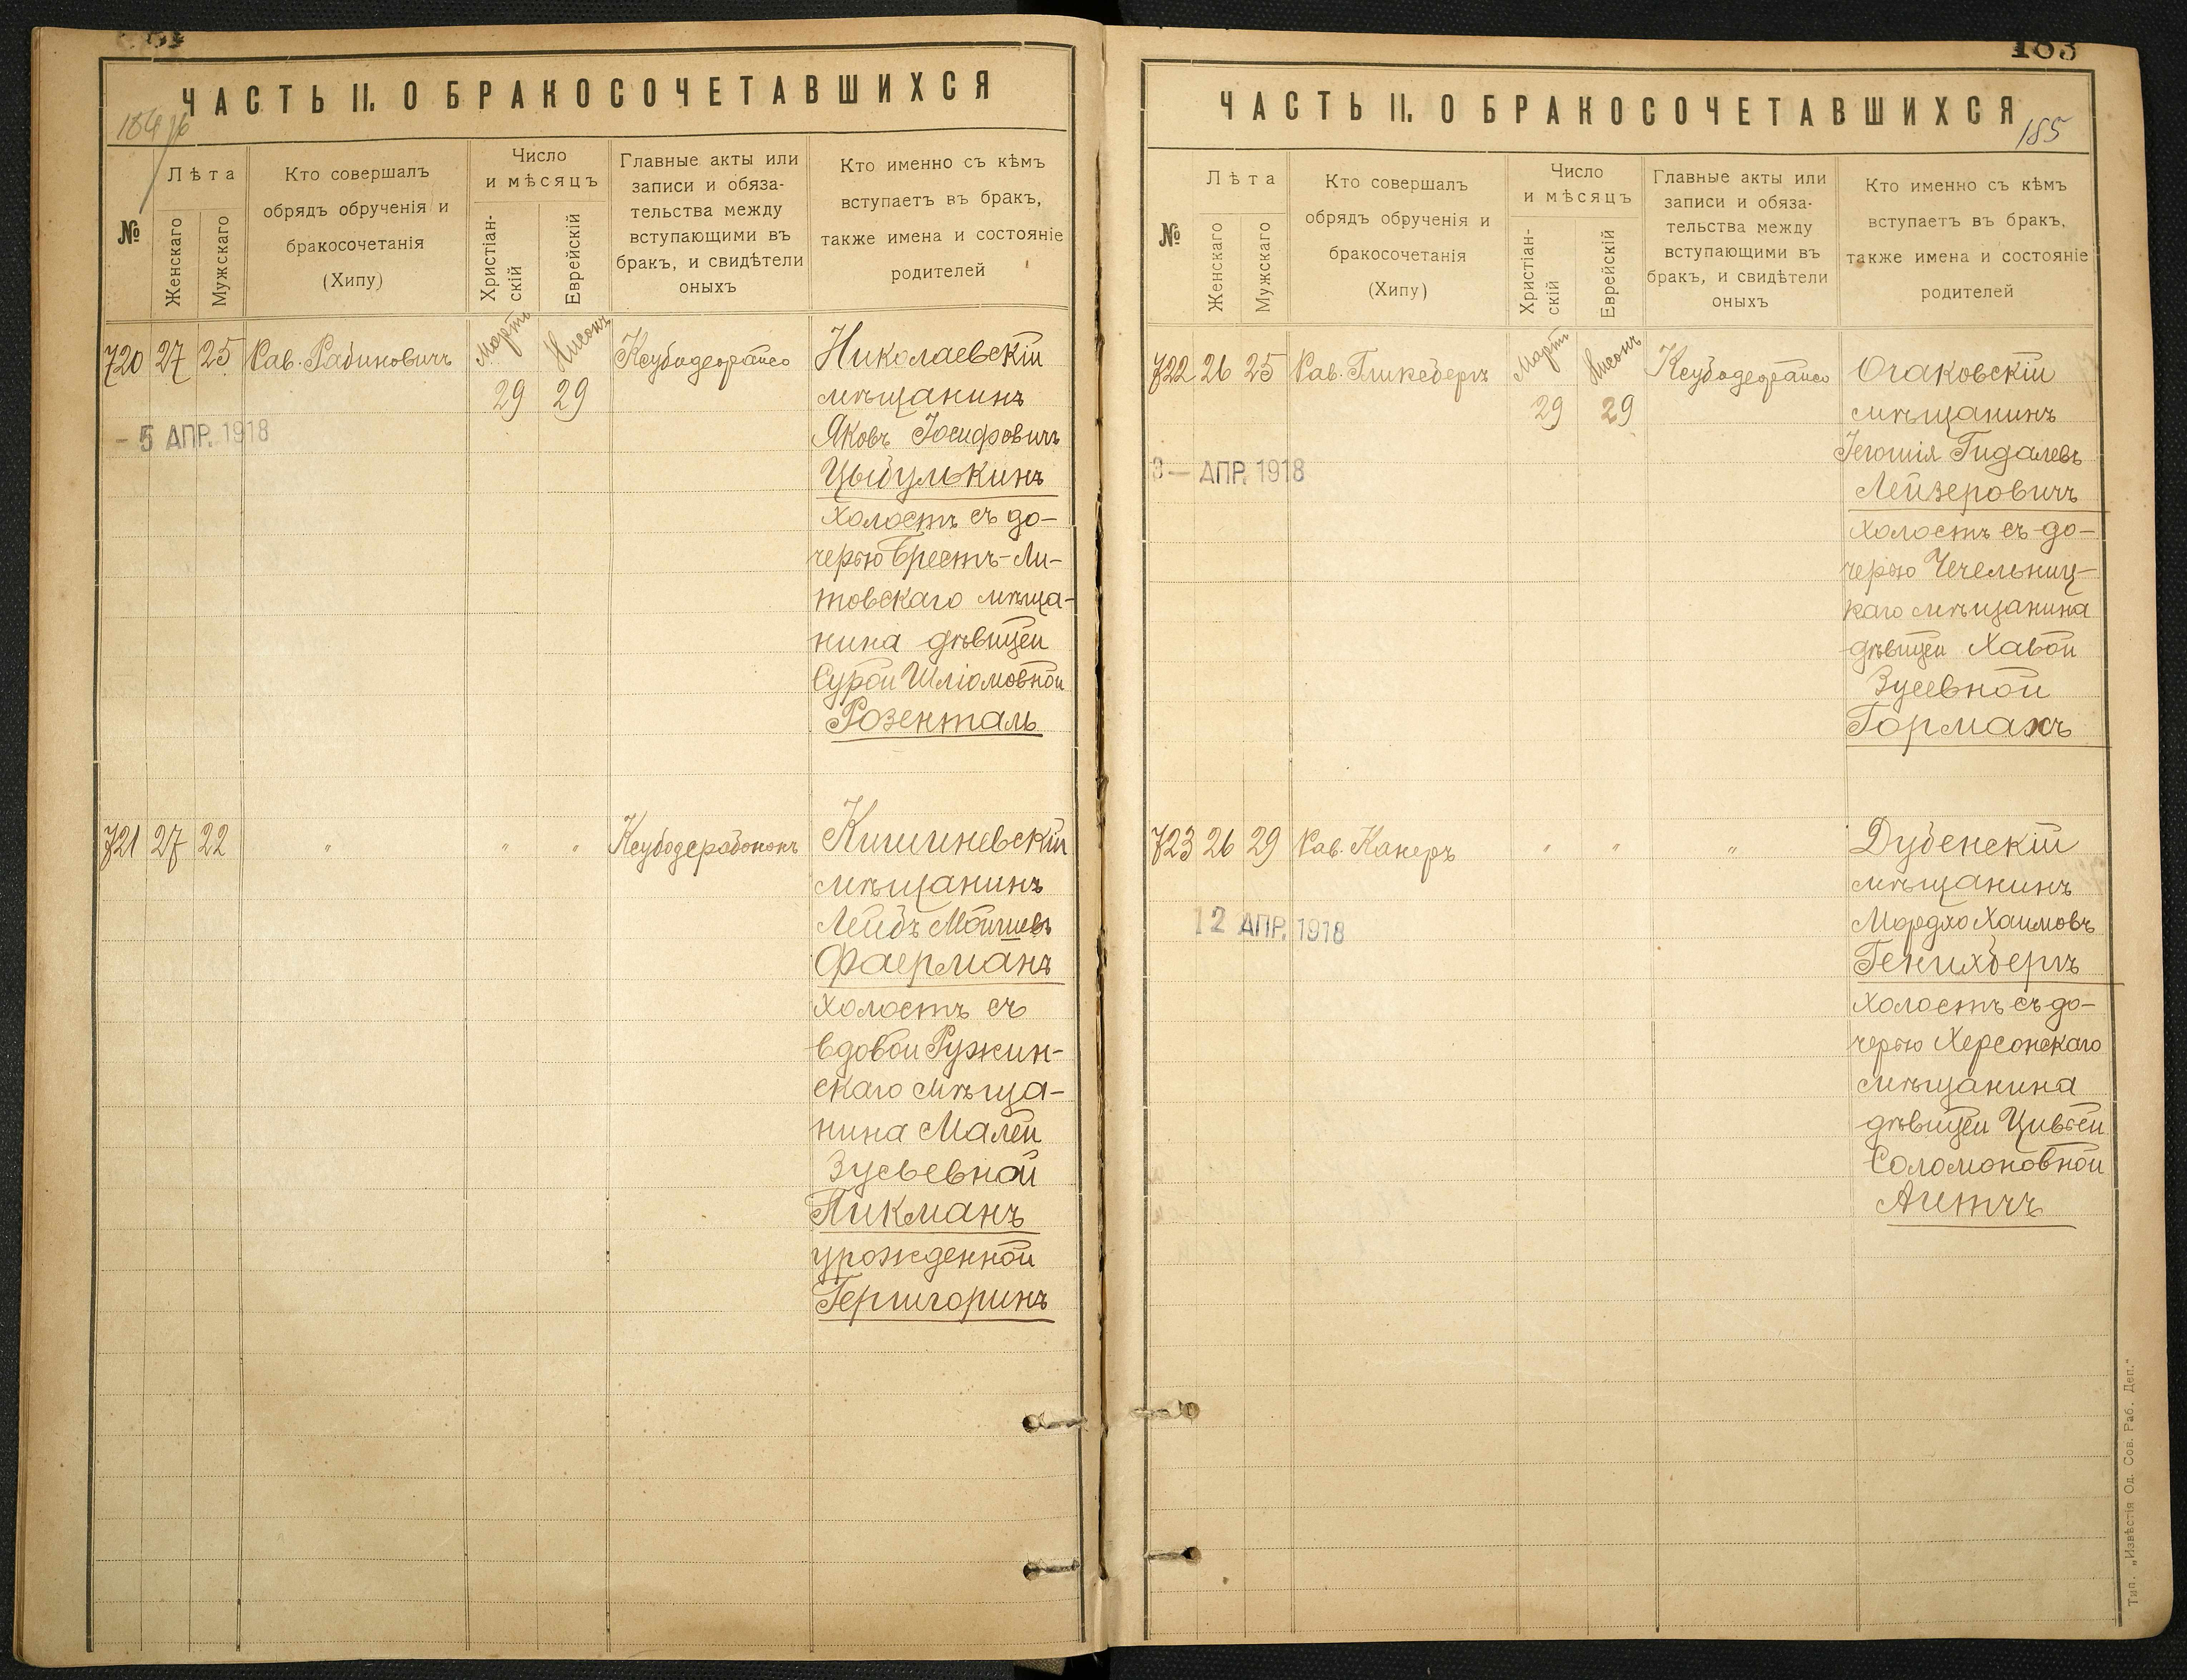 ЧАСТЬ II. О БРАКОСОЧЕТАВШИХСЯ
№
Лѣта
Женскаго
Мужскаго
Кто совершалъ
обрядъ обрученія и
бракосочетанія
(Хипу)
Число
и мѣсяцъ
Христіан-
скій
Еврейскій
Главные акты или
записи и обяза-
тельства между
вступающими въ
бракъ, и свидѣтели
оныхъ
Кто именно съ кѣмъ
вступаетъ въ бракъ,
также имена и состояніе
родителей
720 27 25 Рав. Рабиновичъ Мартъ Нисонъ
29 29
- 5 АПР. 1918
Николаевскій
мѣщанинъ
Яковъ Іосифовичъ
Цыбулькинъ
холостъ съ до-
черью Брестъ-Ли-
товскаго мѣща-
нина дѣвицей
Сурой Шліомовной
Розенталь
721 27 22 " " " Ксубодерабононъ
Кишиневскій
мѣщанинъ
Лейбъ Мошиевъ
Фаерманъ
холостъ съ
вдовой Ружин-
скаго мѣща-
нина Малей
Зусьевной
Пикманъ
урожденной
Гершгоринъ
183
ЧАСТЬ II. О БРАКОСОЧЕТАВШИХСЯ
185
№
Лѣта
Женскаго
Мужскаго
Кто совершалъ
обрядъ обрученія и
бракосочетанія
(Хипу)
Число
и мѣсяцъ
Христіан-
скій
Еврейскій
Главные акты или
записи и обяза-
тельства между
вступающими въ
бракъ, и свидѣтели
оныхъ
Кто именно съ кѣмъ
вступаетъ въ бракъ,
также имена и состояніе
родителей
722 26 25 Рав. Гликсбергъ Мартъ Нисонъ
29 29
3 - АПР. 1918
Очаковскій
мѣщанинъ
Гидалевъ
Лейзеровичъ
холостъ съ до-
черью Чечельниц-
каго мѣщанина
дѣвицей Хавой
Зусевной
Гормахъ
723 26 29 Рав. Канеръ " " "
12 АПР. 1918
Дубенскій
мѣщанинъ
Мордхо Хаимовъ
Генихбергъ
холостъ съ до-
черью Херсонскаго
мѣщанина
дѣвицей Цивьей
Соломоновной
Тип. „Извѣстія Од. Сов. Раб. Деп."